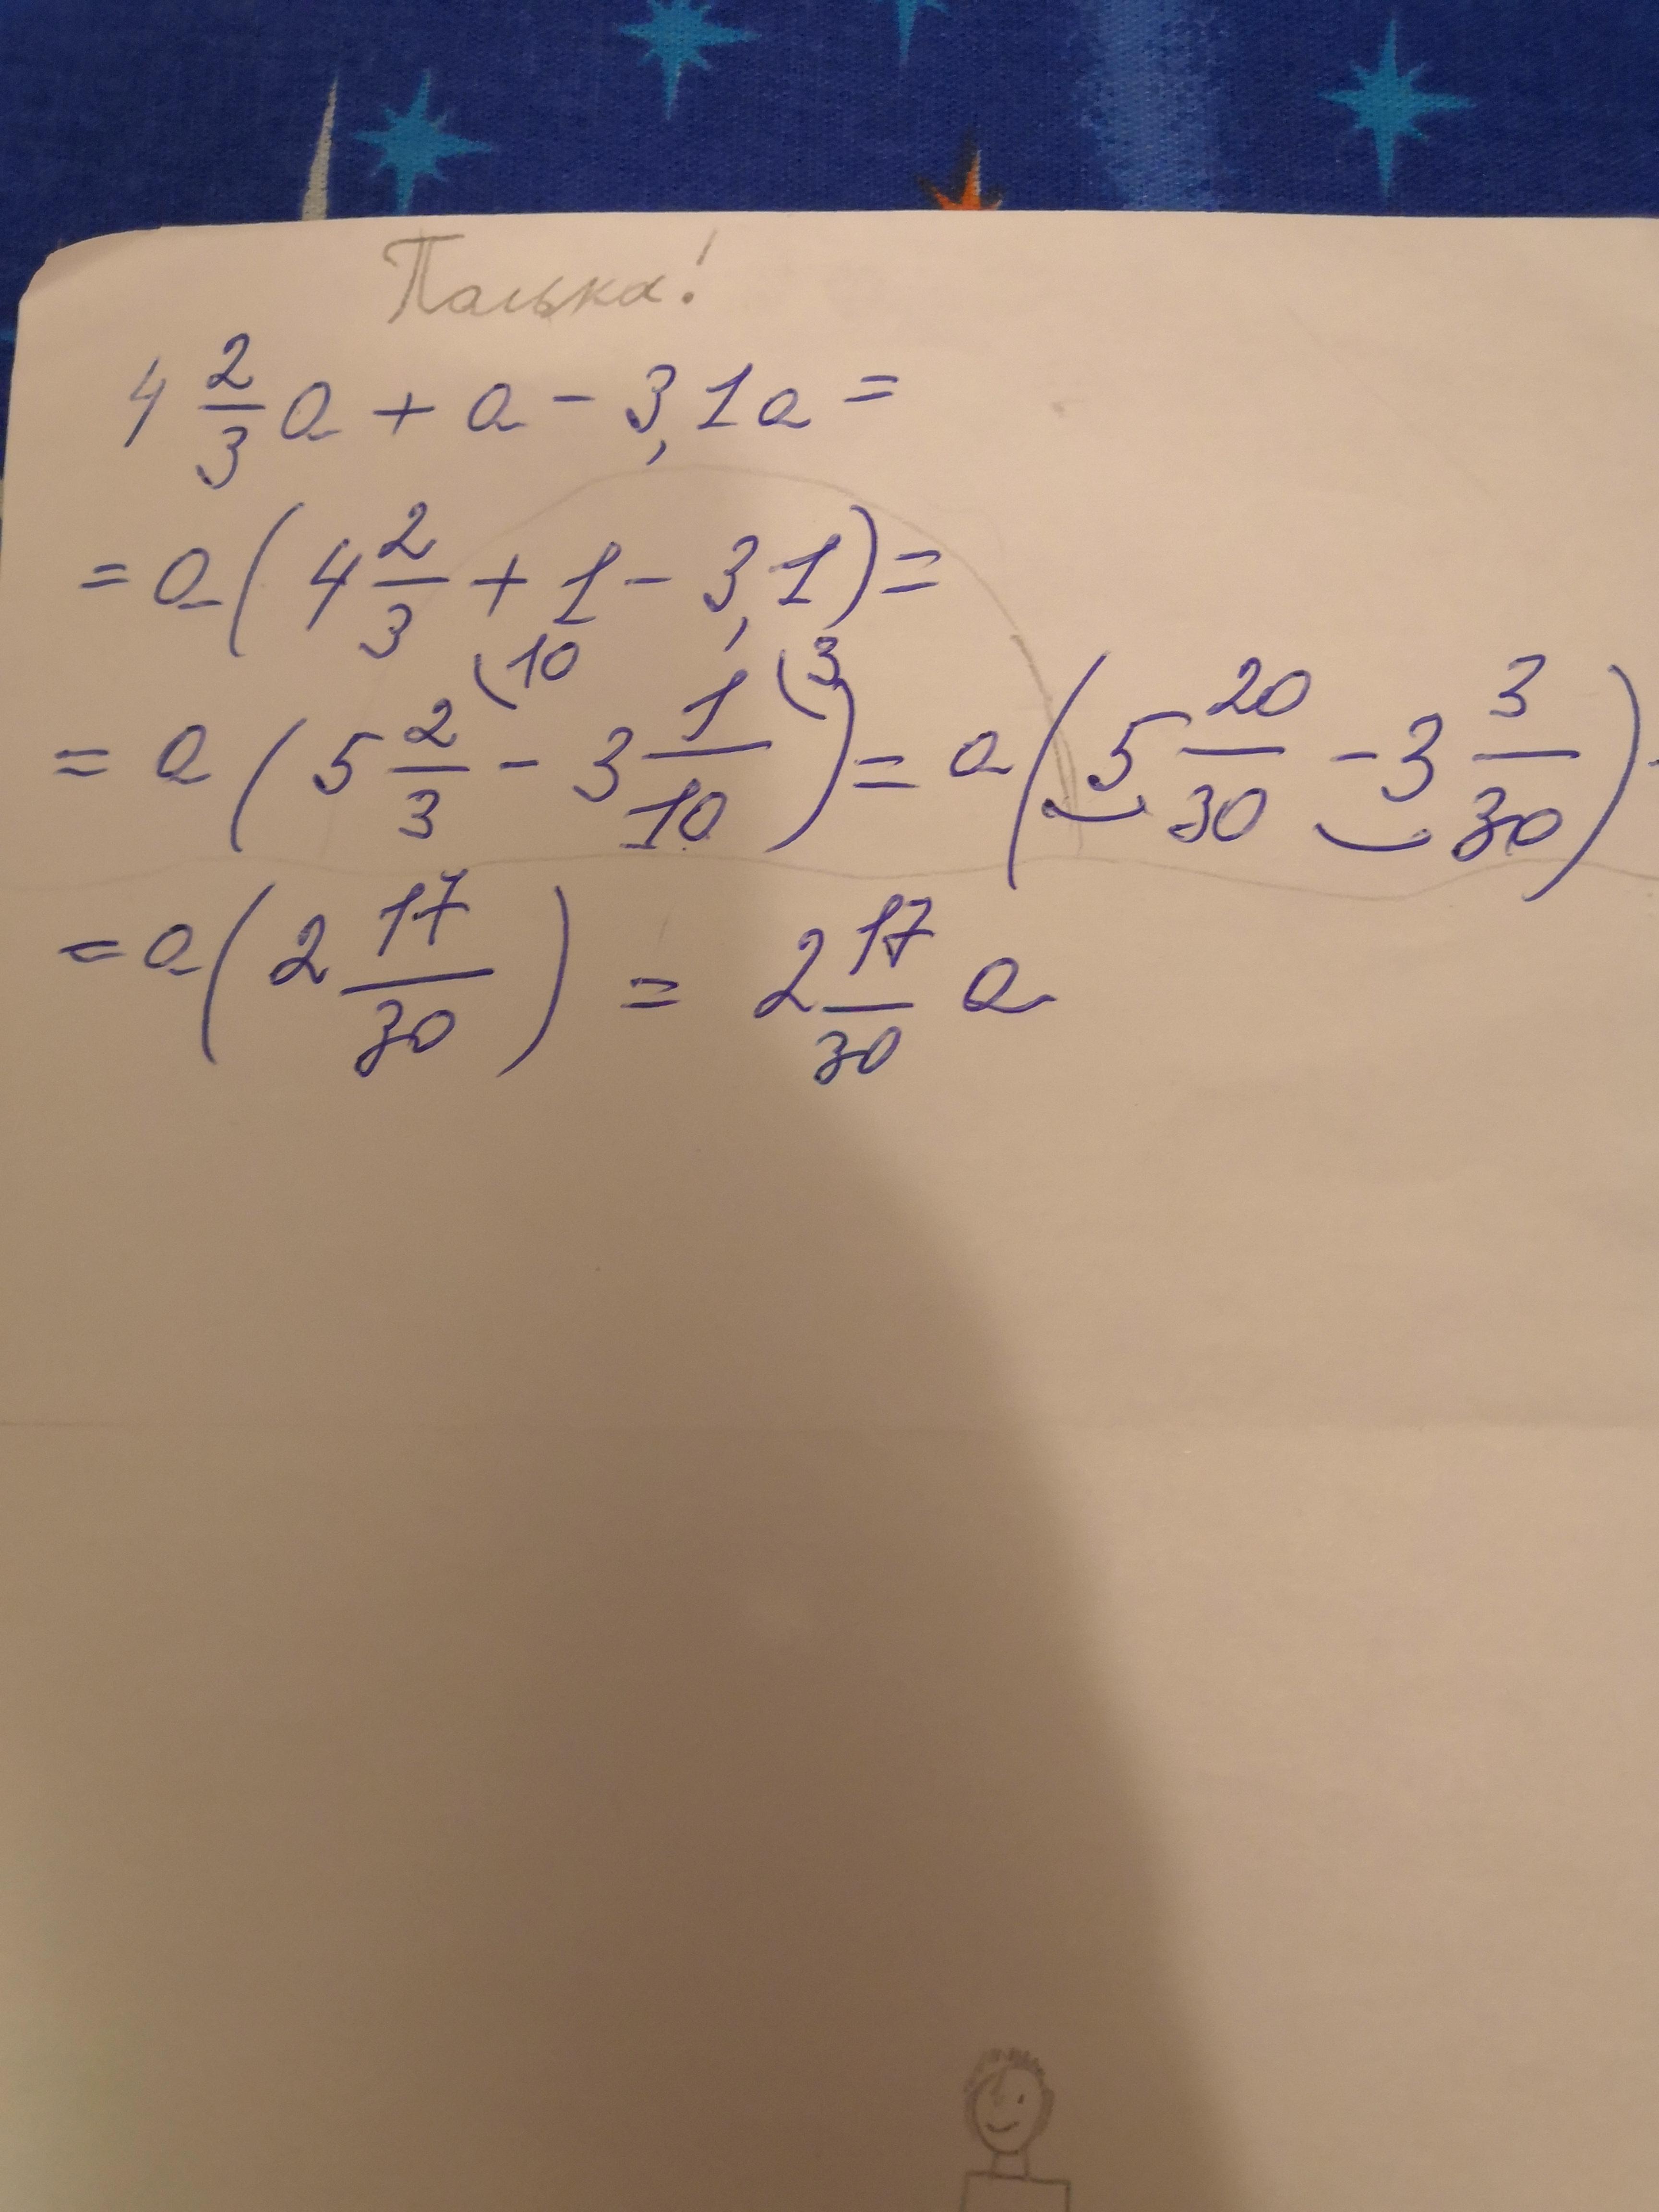 Палька!
4 2/3 a + a - 3,1a =
= a(4 2/3 + 1 - 3,1) =
= a(5 2/3 (10 - 3 1/10 (3) = a(5 20/30 - 3 3/30)
= a(2 17/30) = 2 17/30 a